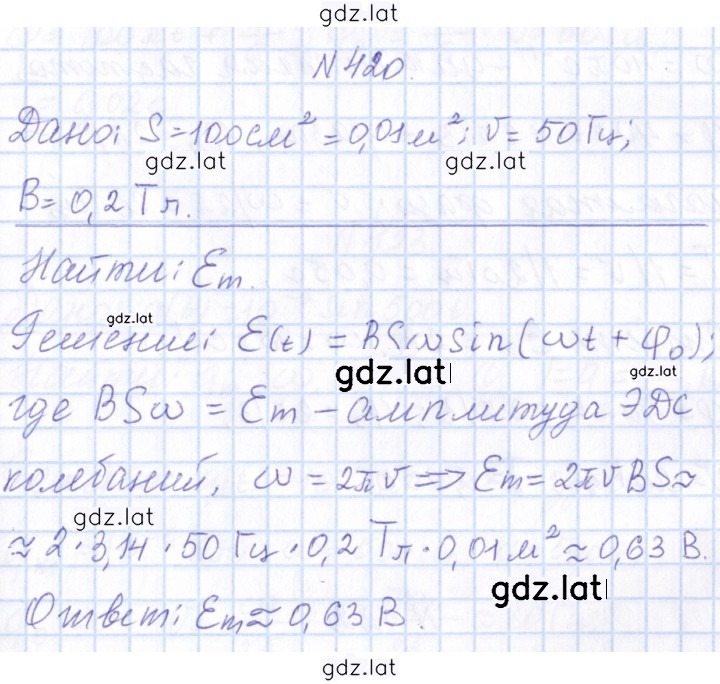 gdz.lat
N 420.
Дано: S = 100 см² = 0,01 м²; ν = 50 Гц;
gdz.lat gdz.lat
B = 0,2 Тл.
Найти: Ɛm.
gdz.lat
Решение: Ɛ(t) = BSω sin(ωt + φ₀);
gdz.lat gdz.lat
где BSω = Ɛm – амплитуда ЭДС
колебаний, ω = 2πν => Ɛm = 2πνBS ≈
gdz.lat
≈ 2 · 3,14 · 50 Гц · 0,2 Тл · 0,01 м² ≈ 0,63 В.
gdz.lat
Ответ: Ɛm ≈ 0,63 В.
gdz.lat